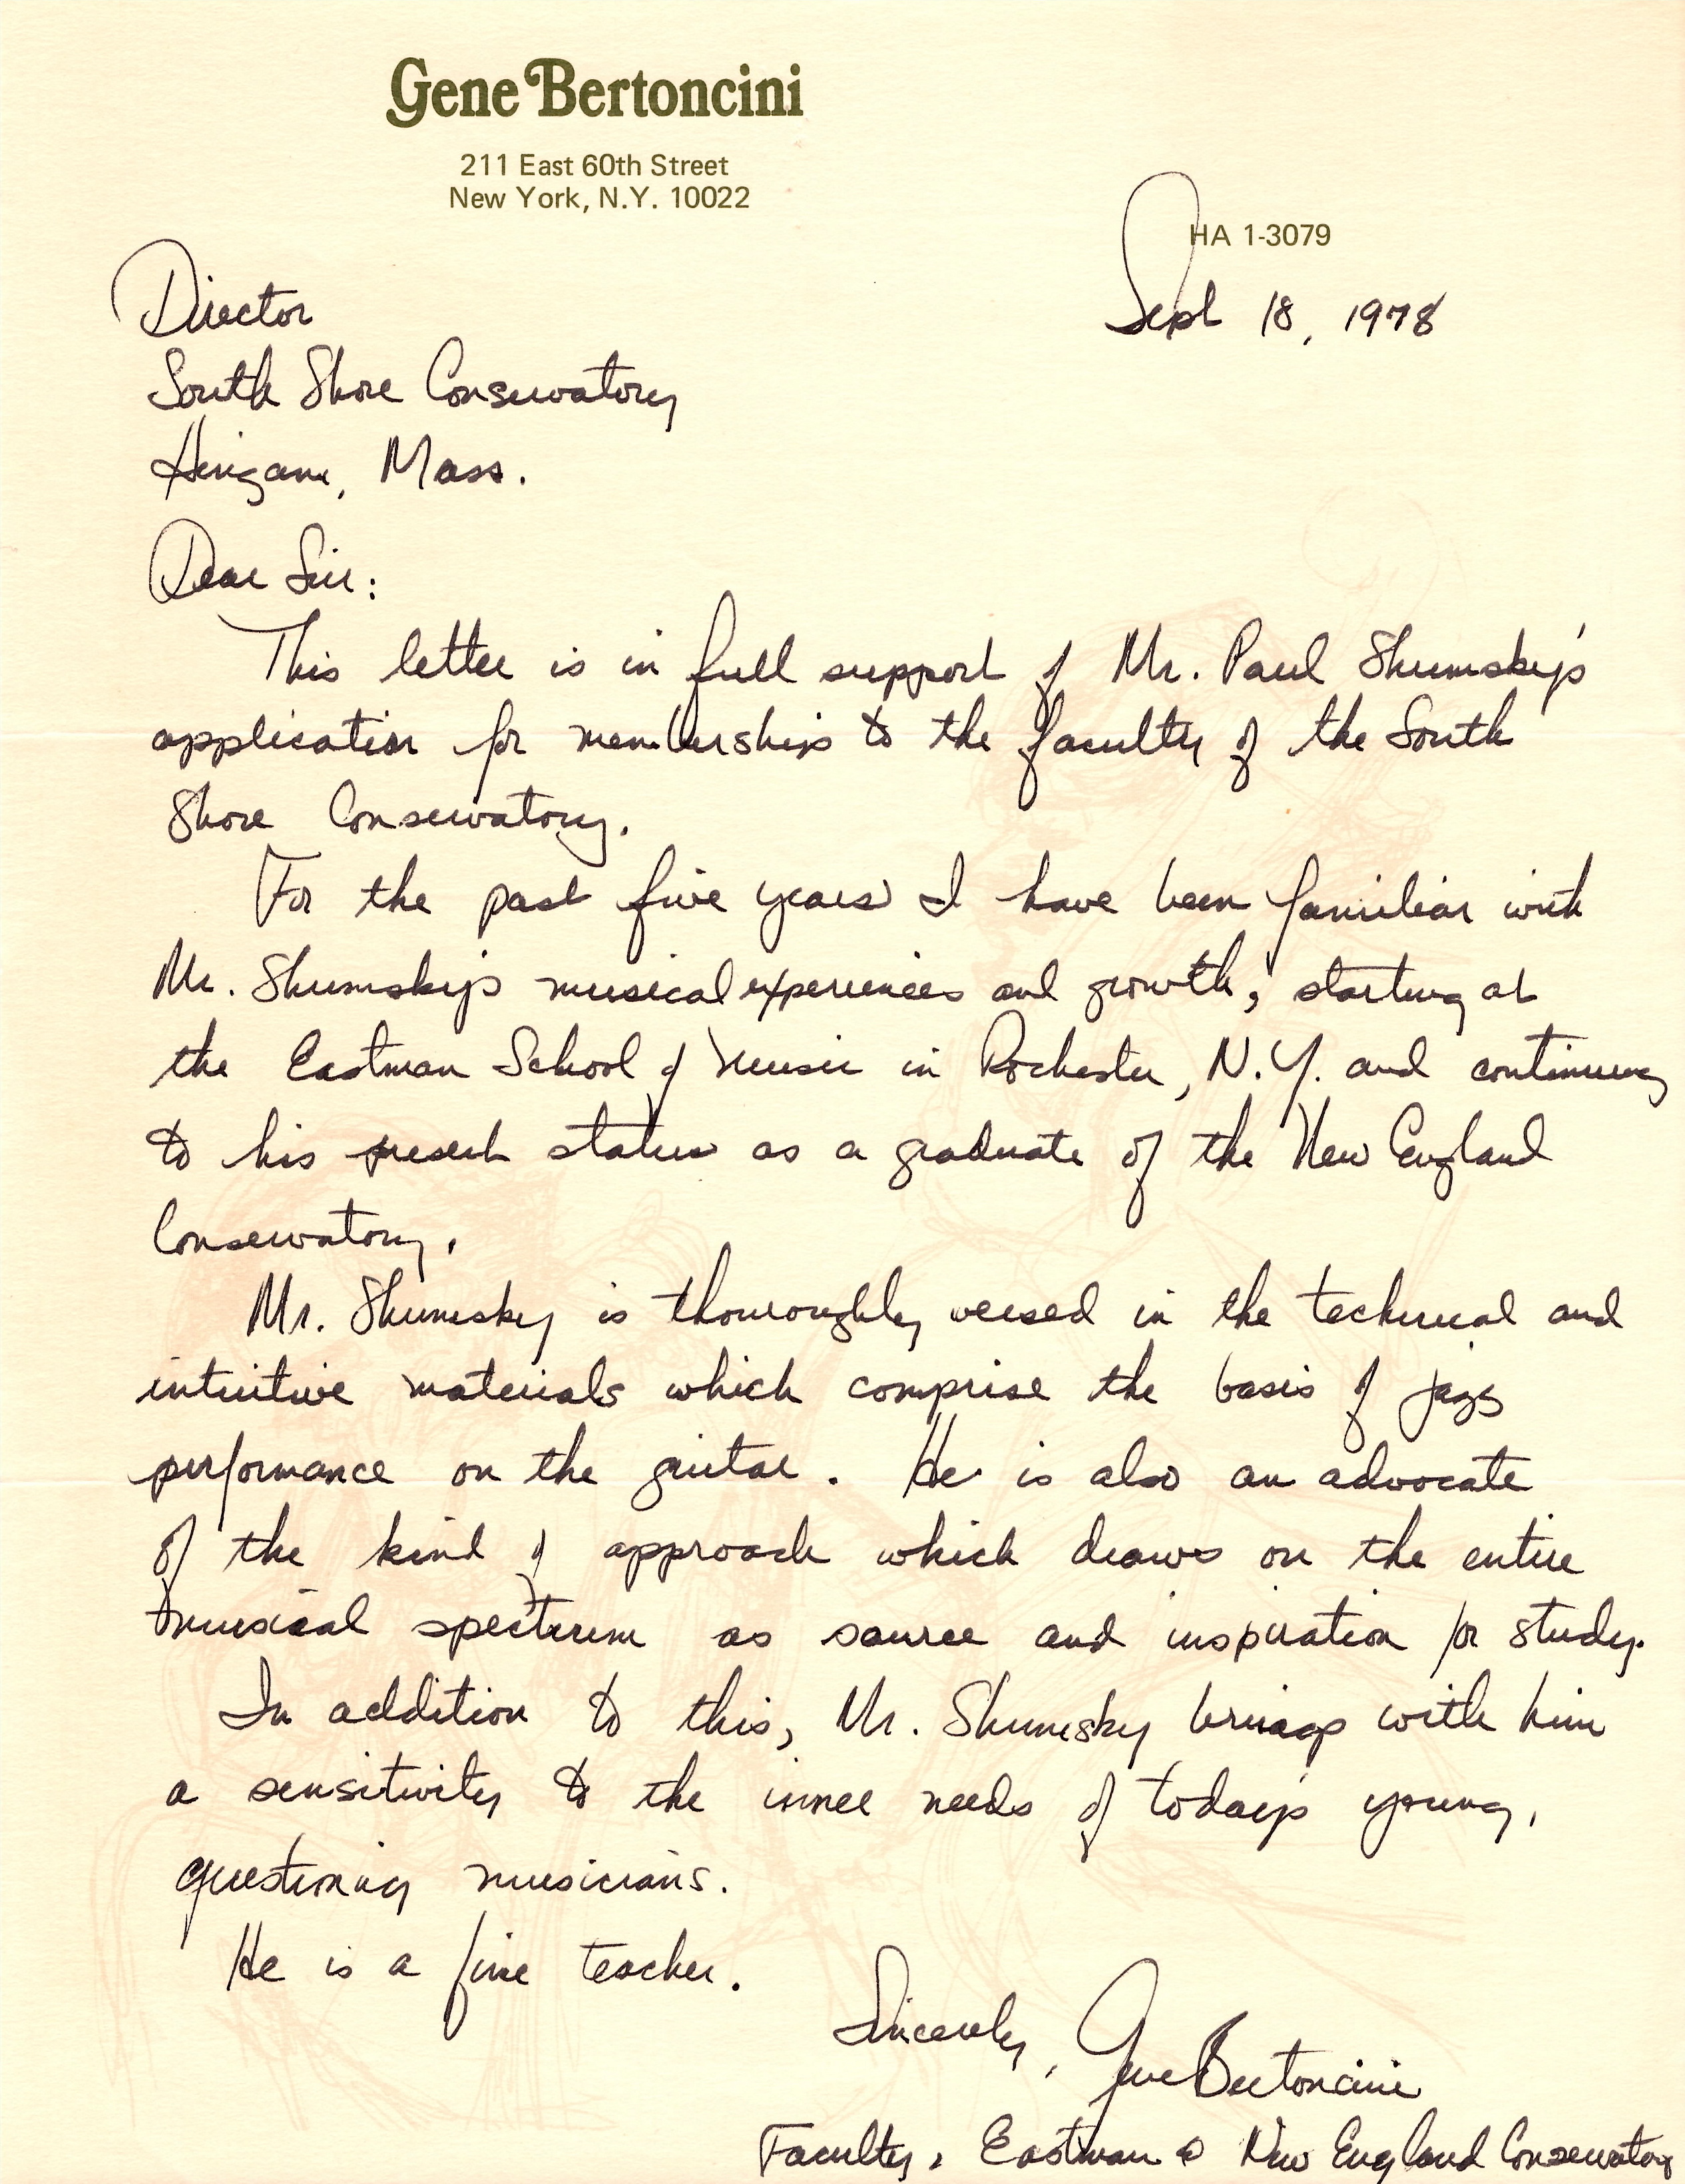 Gene Bertoncini
211 East 60th Street
New York, N.Y. 10022
HA 1-3079
Sept 18, 1978
Director
South Shore Conservatory
Hingam, Mass.
Dear Sir:
This letter is in full support of Mr. Paul Shumsky's
application for membership to the faculty of the South
Shore Conservatory.
For the past five years I have been familiar with
Mr. Shumsky's musical experiences and growth, starting at
the Eastman School of Music in Rochester, N.Y. and continuing
to his present status as a graduate of the New England
Conservatory.
Mr. Shumsky is thouroughly versed in the technical and
intuitive materials which comprise the basis of jazz
performance on the guitar. He is also an advocate
of the kind of approach which draws on the entire
musical spectrum as source and inspiration for study.
In addition to this, Mr. Shumsky brings with him
a sensitivity to the inner needs of today's young,
questioning musicians.
He is a fine teacher.
Sincerely, Gene Bertoncini
Faculty, Eastman & New England Conservatory